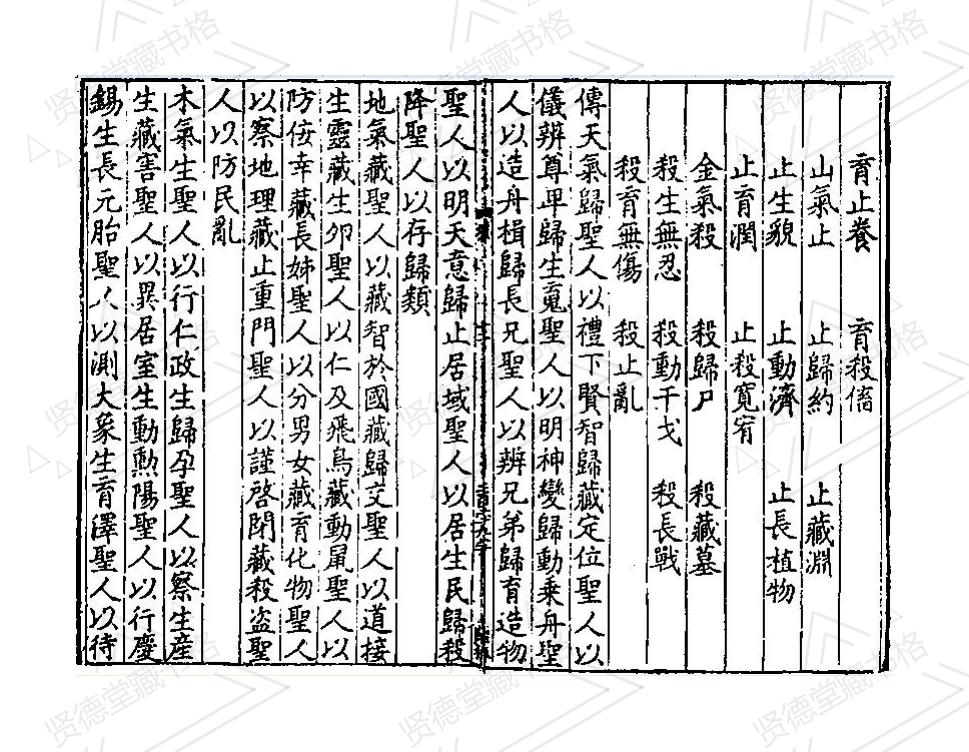 育止養　育殺僃
山氣止　止歸約　止藏淵
止生貌　止動濟　止長植物
止育潤　止殺寬宥
金氣殺　殺歸尸　殺藏墓
殺生無忍　殺動干戈　殺長戰
殺育無傷　殺止亂
傳天氣歸聖人以禮下賢智歸藏定位聖人以
儀辨尊卑歸生䰟聖人以明神變歸動乗舟聖
人以造舟楫歸長兄聖人以辨兄弟歸育造物
聖人以明天意歸止居域聖人以居生民歸殺
降聖人以存歸類
地氣藏聖人以藏智於國藏歸交聖人以道接
生靈藏生夘聖人以仁及飛鳥藏動鼠聖人以
防侫幸藏長姊聖人以分男女藏育化物聖人
以察地理藏止重門聖人以謹啓閉藏殺盗聖
人以防民亂
木氣生聖人以行仁政生歸孕聖人以察生産
生藏害聖人以異居室生動勲陽聖人以行慶
錫生長元胎聖人以測大象生育澤聖人以待
贤德堂藏书格